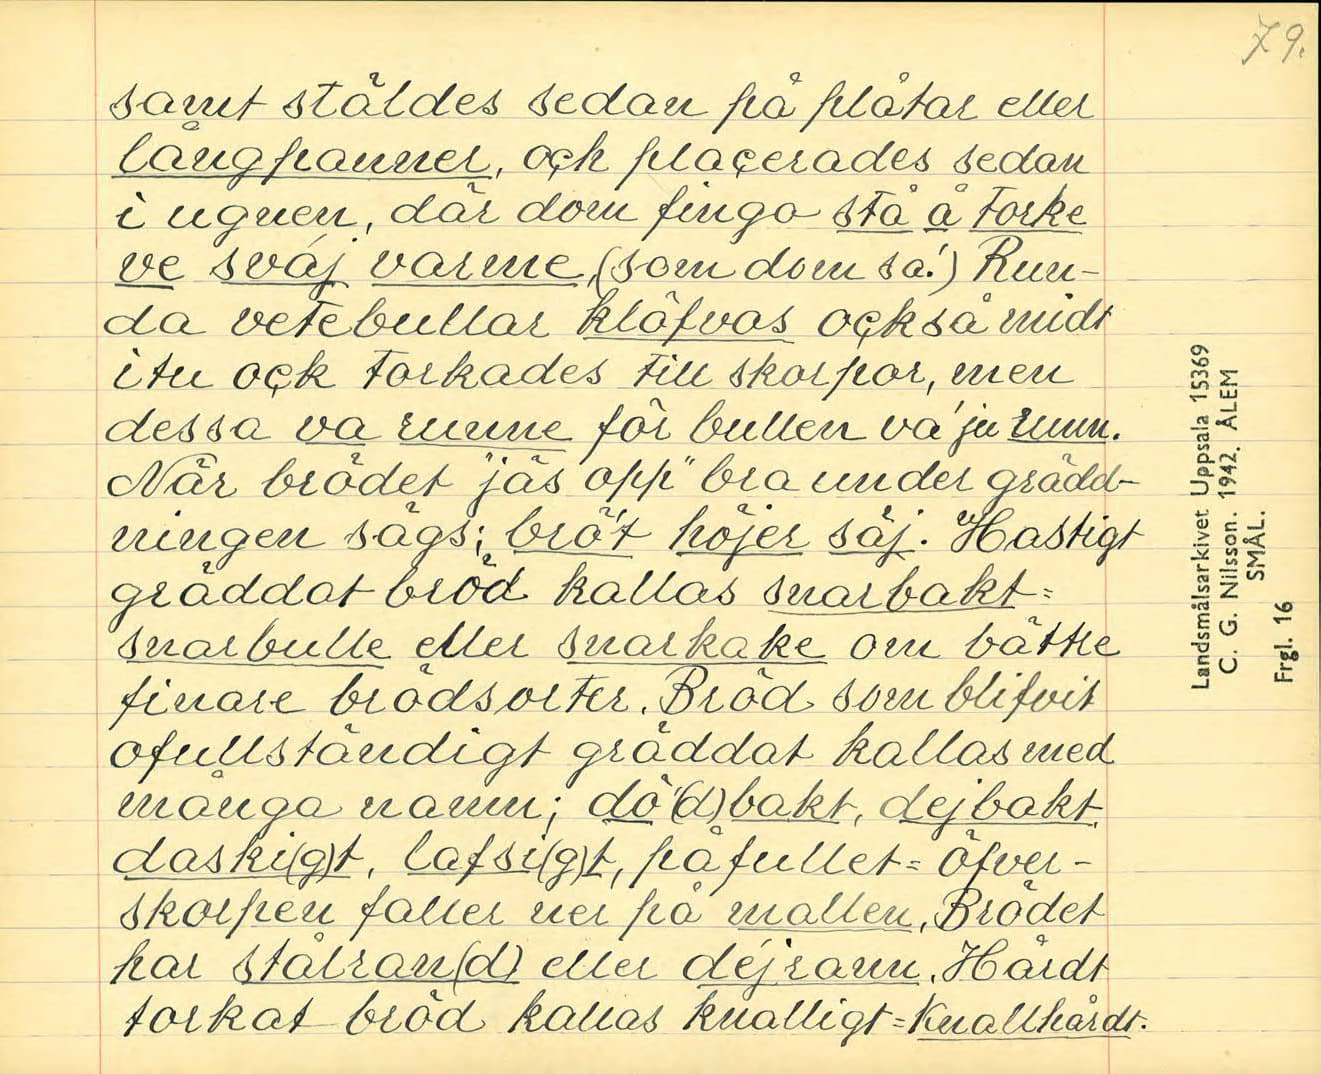 79.
samt stäldes sedan på plåtar eller
långpanner, oçh plaçerades sedan
i ugnen, där dom fingo stå å torke
ve sváj varme, (som dom sa!) Run-
da vetebullar klöfvas oçkså midt
itu oçk torkades till skorpor, men
dessa va runne för bullen va' ju runn.
När brödet "jäs opp" bra under grädd-
ningen sägs; brö't höjer säj. Hastigt
gräddat bröd kallas snarbakt=
snarbulle eller snarkake om bättre
finare brödsorter. Bröd som blifvit
ofullständigt gräddat kallas med
många namn; dö'(d)bakt, dejbakt,
daski(g)t, lafsi(g)t, påfullet= öfver-
skorpen faller ner på mallen, Brödet
har stålran(d) eller déjrann. Hårdt
torkat bröd kallas knalligt=Knallhårdt.
Landsmålsarkivet Uppsala 15369
C. G. Nilsson. 1942. ÅLEM
SMÅL.
Frgl. 16